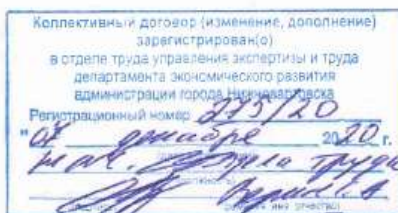 Коллективный договор (изменение, дополнение)
зарегистрирован(о)
в отделе труда управления экспертизы и труда
департамента экономического развития
администрации города Нижневартовска
Регистрационный номер 275/20
"07 декабря 2020 г.
отдела труда